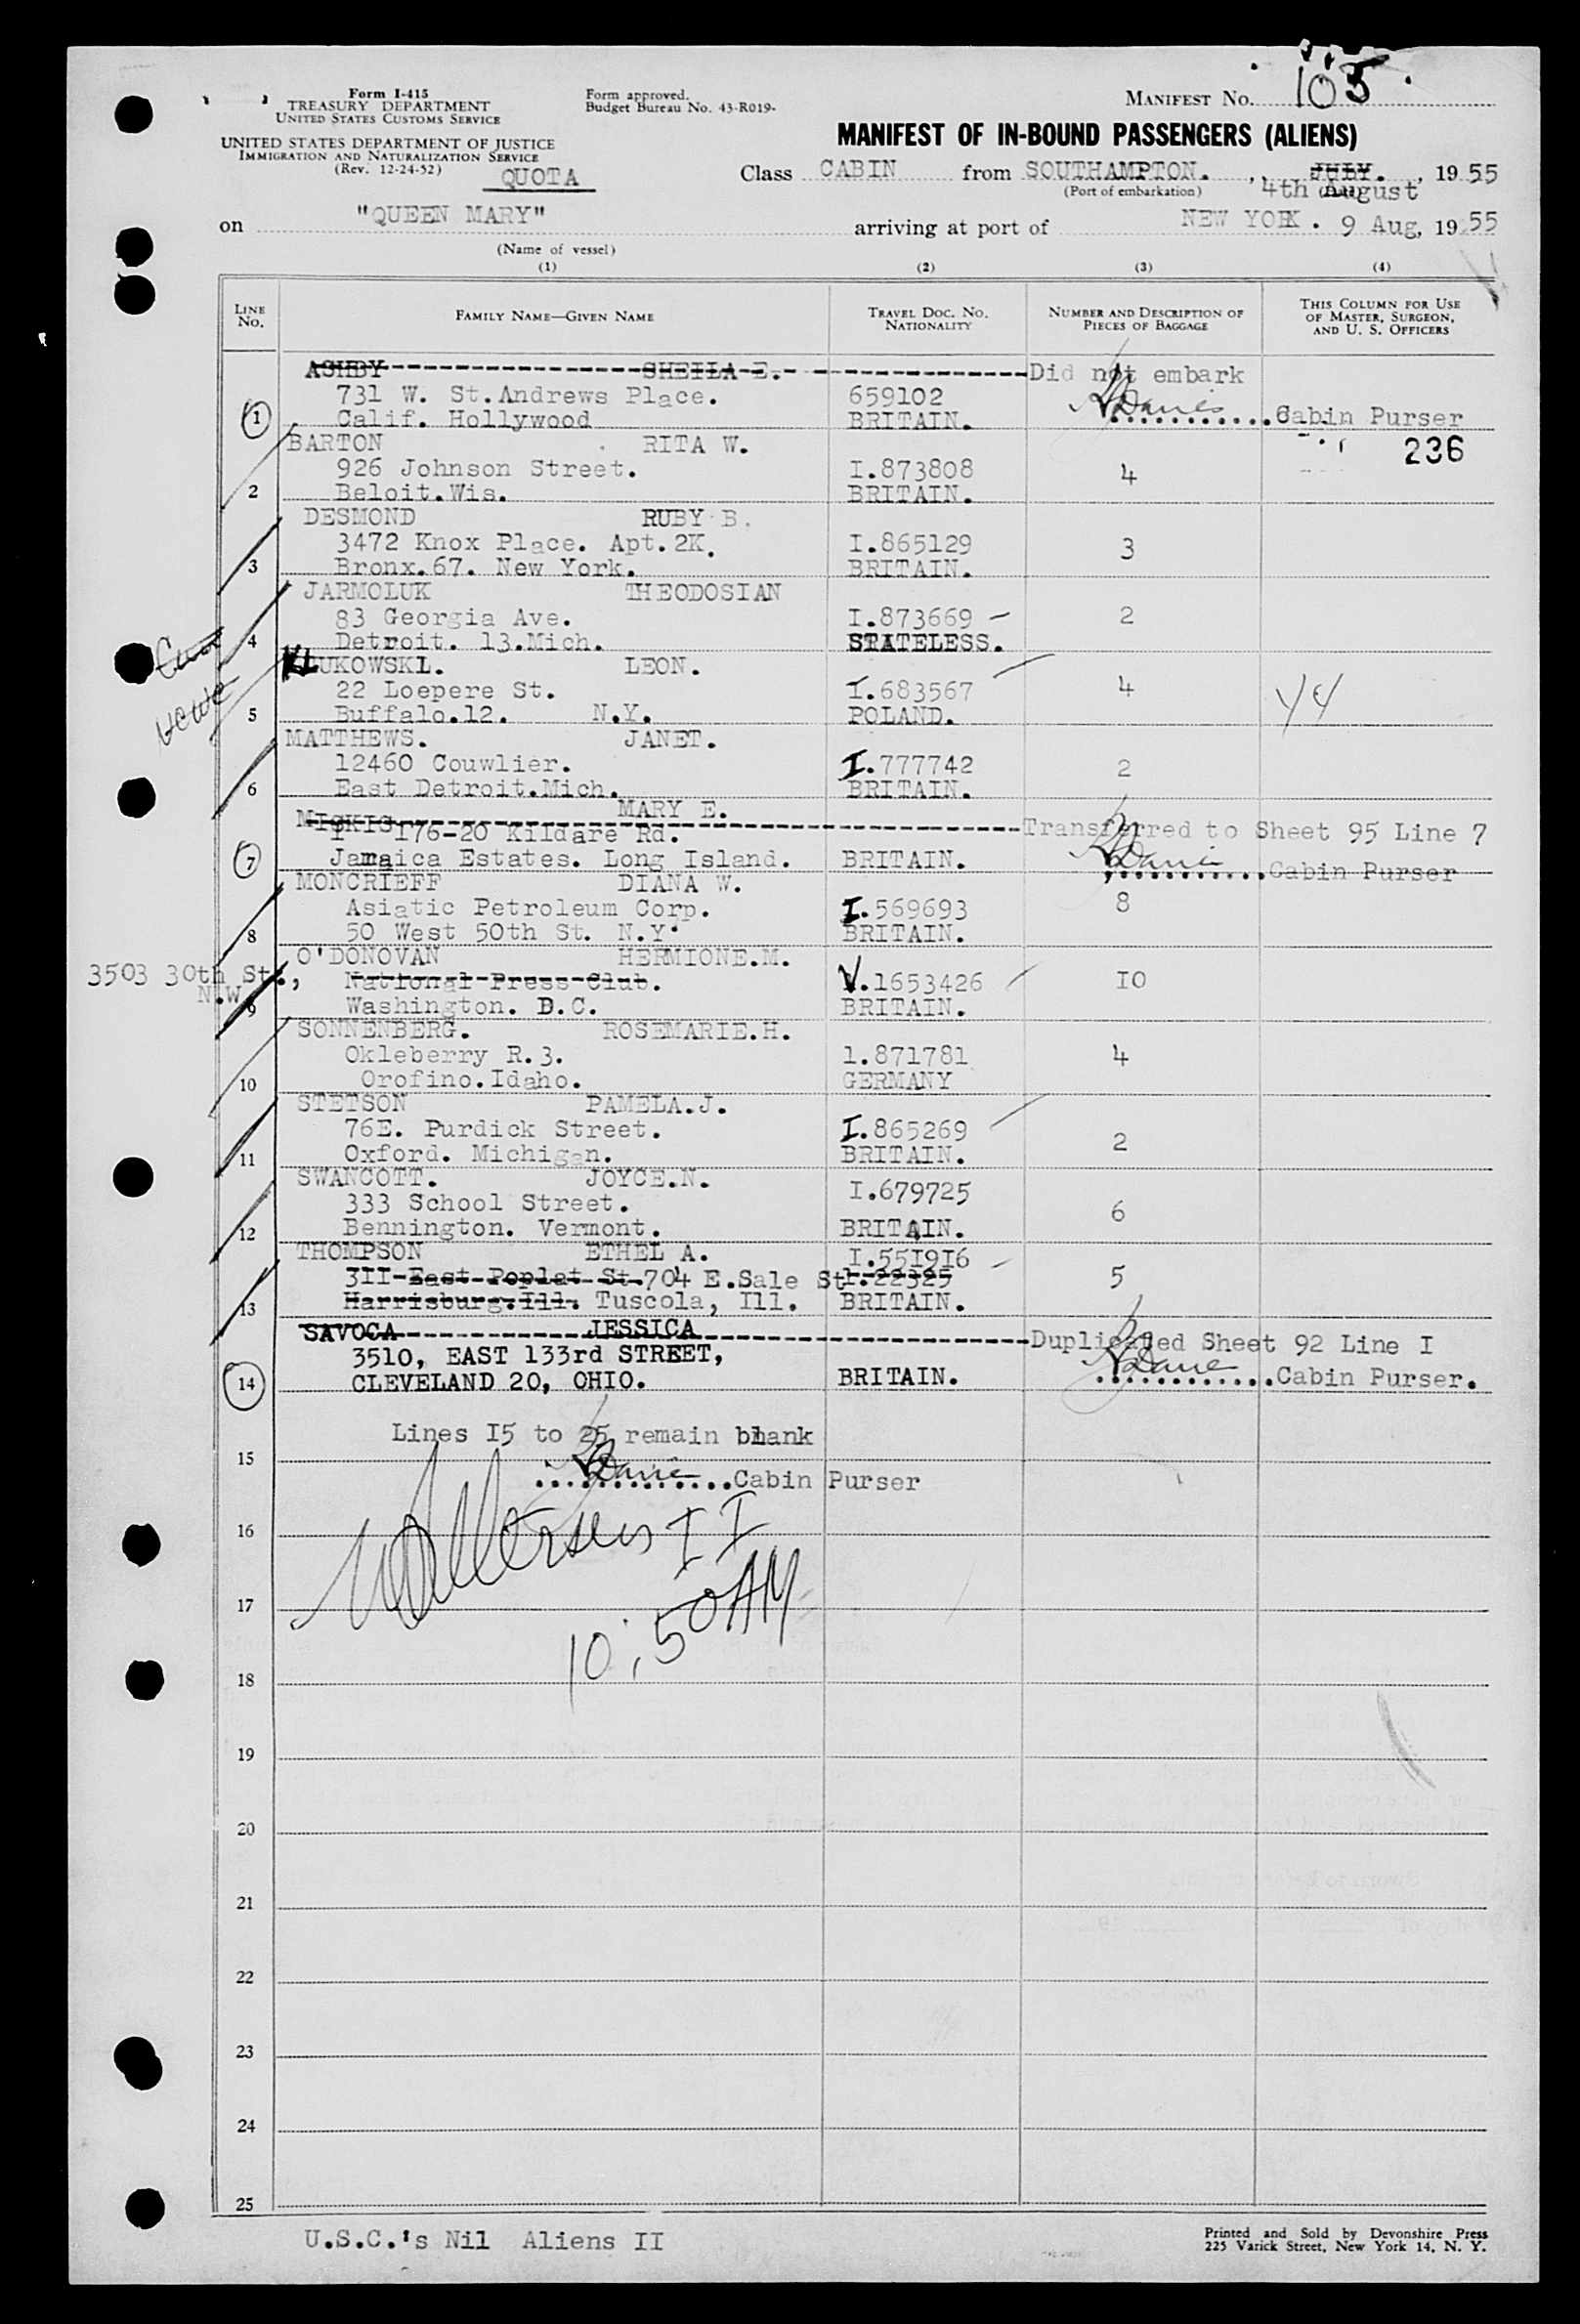 Form I-415
TREASURY DEPARTMENT
UNITED STATES CUSTOMS SERVICE
UNITED STATES DEPARTMENT OF JUSTICE
IMMIGRATION AND NATURALIZATION SERVICE
(Rev. 12-24-52)
QUOTA
Form approved.
Budget Bureau No. 43-R019-
MANIFEST No. 105
MANIFEST OF IN-BOUND PASSENGERS (ALIENS)
Class CABIN from SOUTHAMPTON. , JULY. , 1955
(Port of embarkation) 4th August
on "QUEEN MARY" arriving at port of NEW YORK. 9 Aug, 1955
(Name of vessel)
(1) (2) (3) (4)
LINE No. FAMILY NAME—GIVEN NAME TRAVEL DOC. NO. NATIONALITY NUMBER AND DESCRIPTION OF PIECES OF BAGGAGE THIS COLUMN FOR USE OF MASTER, SURGEON, AND U. S. OFFICERS
ASHBY SHEILA E. Did not embark
731 W. St.Andrews Place. 659102
1 Calif. Hollywood BRITAIN. Cabin Purser
BARTON RITA W. 236
926 Johnson Street. I.873808 4
2 Beloit.Wis. BRITAIN.
DESMOND RUBY B.
3472 Knox Place. Apt.2K. I.865129 3
3 Bronx.67. New York. BRITAIN.
JARMOLUK THEODOSIAN
83 Georgia Ave. I.873669 2
4 Detroit. 13.Mich. STATELESS.
KLUKOWSKI. LEON.
22 Loepere St. I.683567 4
5 Buffalo.12. N.Y. POLAND.
MATTHEWS. JANET.
12460 Couwlier. I.777742 2
6 East Detroit.Mich. BRITAIN.
MISKIS MARY E. Transferred to Sheet 95 Line 7
176-20 Kildare Rd.
7 Jamaica Estates. Long Island. BRITAIN. Cabin Purser
MONCRIEFF DIANA W.
Asiatic Petroleum Corp. I.569693 8
8 50 West 50th St. N.Y. BRITAIN.
O'DONOVAN HERMIONE.M.
3503 30th St., N.W. National Press Club. V.1653426 10
9 Washington. D.C. BRITAIN.
SONNENBERG. ROSEMARIE.H.
Okleberry R.3. 1.871781 4
10 Orofino.Idaho. GERMANY
STETSON PAMELA.J.
76E. Purdick Street. I.865269 2
11 Oxford. Michigan. BRITAIN.
SWANCOTT. JOYCE.N.
333 School Street. I.679725 6
12 Bennington. Vermont. BRITAIN.
THOMPSON ETHEL A. I.551916
311 East Poplat St. 704 E.Sale St I.22325 5
13 Harrisburg.Ill. Tuscola, Ill. BRITAIN.
SAVOCA JESSICA Duplicated Sheet 92 Line I
3510, EAST 133rd STREET,
14 CLEVELAND 20, OHIO. BRITAIN. Cabin Purser.
Lines I5 to 25 remain blank
15
Cabin Purser
16
II
17
10:50AM
18
19
20
21
22
23
24
25
U.S.C.'s Nil Aliens II
Printed and Sold by Devonshire Press
225 Varick Street, New York 14, N. Y.